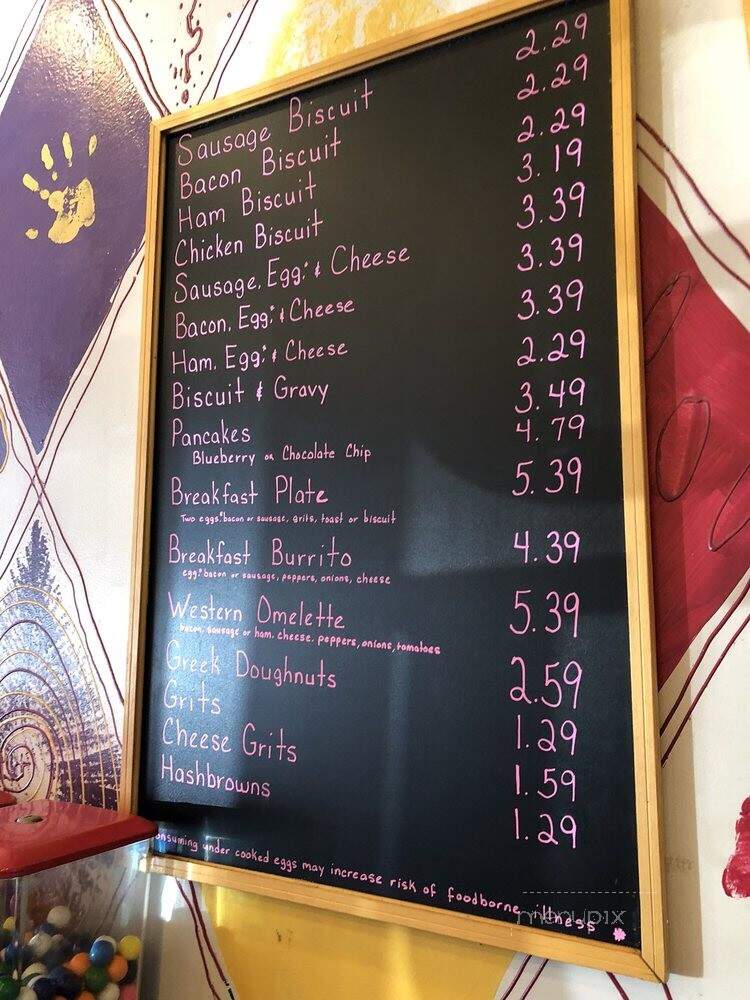 Sausage Biscuit 2.29
Bacon Biscuit 2.29
Ham Biscuit 2.29
Chicken Biscuit 3.19
Sausage, Egg* & Cheese 3.39
Bacon, Egg* & Cheese 3.39
Ham, Egg* & Cheese 3.39
Biscuit & Gravy 2.29
Pancakes 3.49
Blueberry or Chocolate Chip 4.79
Breakfast Plate 5.39
Two eggs* bacon or sausage, grits, toast or biscuit
Breakfast Burrito 4.39
egg* bacon or sausage, peppers, onions, cheese
Western Omelette 5.39
bacon, sausage or ham, cheese, peppers, onions, tomatoes
Greek Doughnuts 2.59
Grits 1.29
Cheese Grits 1.59
Hashbrowns 1.29
onsuming under cooked eggs may increase risk of foodborne illness *
menupix